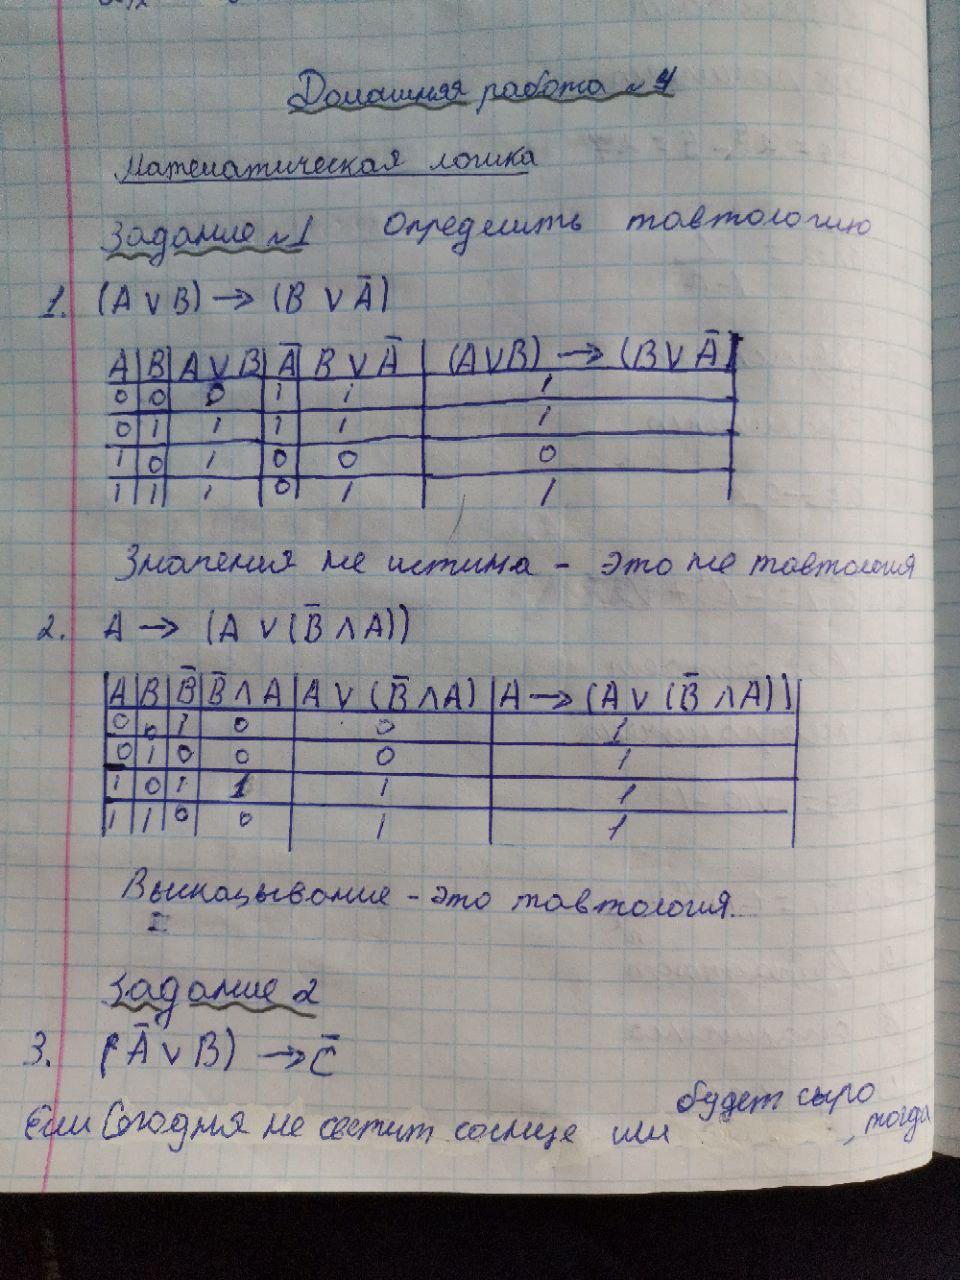 Домашняя работа №4
Математическая логика
Задание №1 Определить тавтологию
1. (A ∨ B) → (B ∨ Ā)
A B A ∨ B Ā B ∨ Ā (A∨B) → (B ∨ Ā)
0 0 0 1 1 1
0 1 1 1 1 1
1 0 1 0 0 0
1 1 1 0 1 1
Значения не истина - это не тавтология
2. A → (A ∨ (B̄ ∧ A))
A B B̄ B̄ ∧ A A ∨ (B̄ ∧ A) A → (A ∨ (B̄ ∧ A))
0 0 1 0 0 1
0 1 0 0 0 1
1 0 1 1 1 1
1 1 0 0 1 1
Высказывание - это тавтология.
Задание 2
3. (Ā ∨ B) → C̄
Если Сегодня не светит солнце или будет сыро, тогда